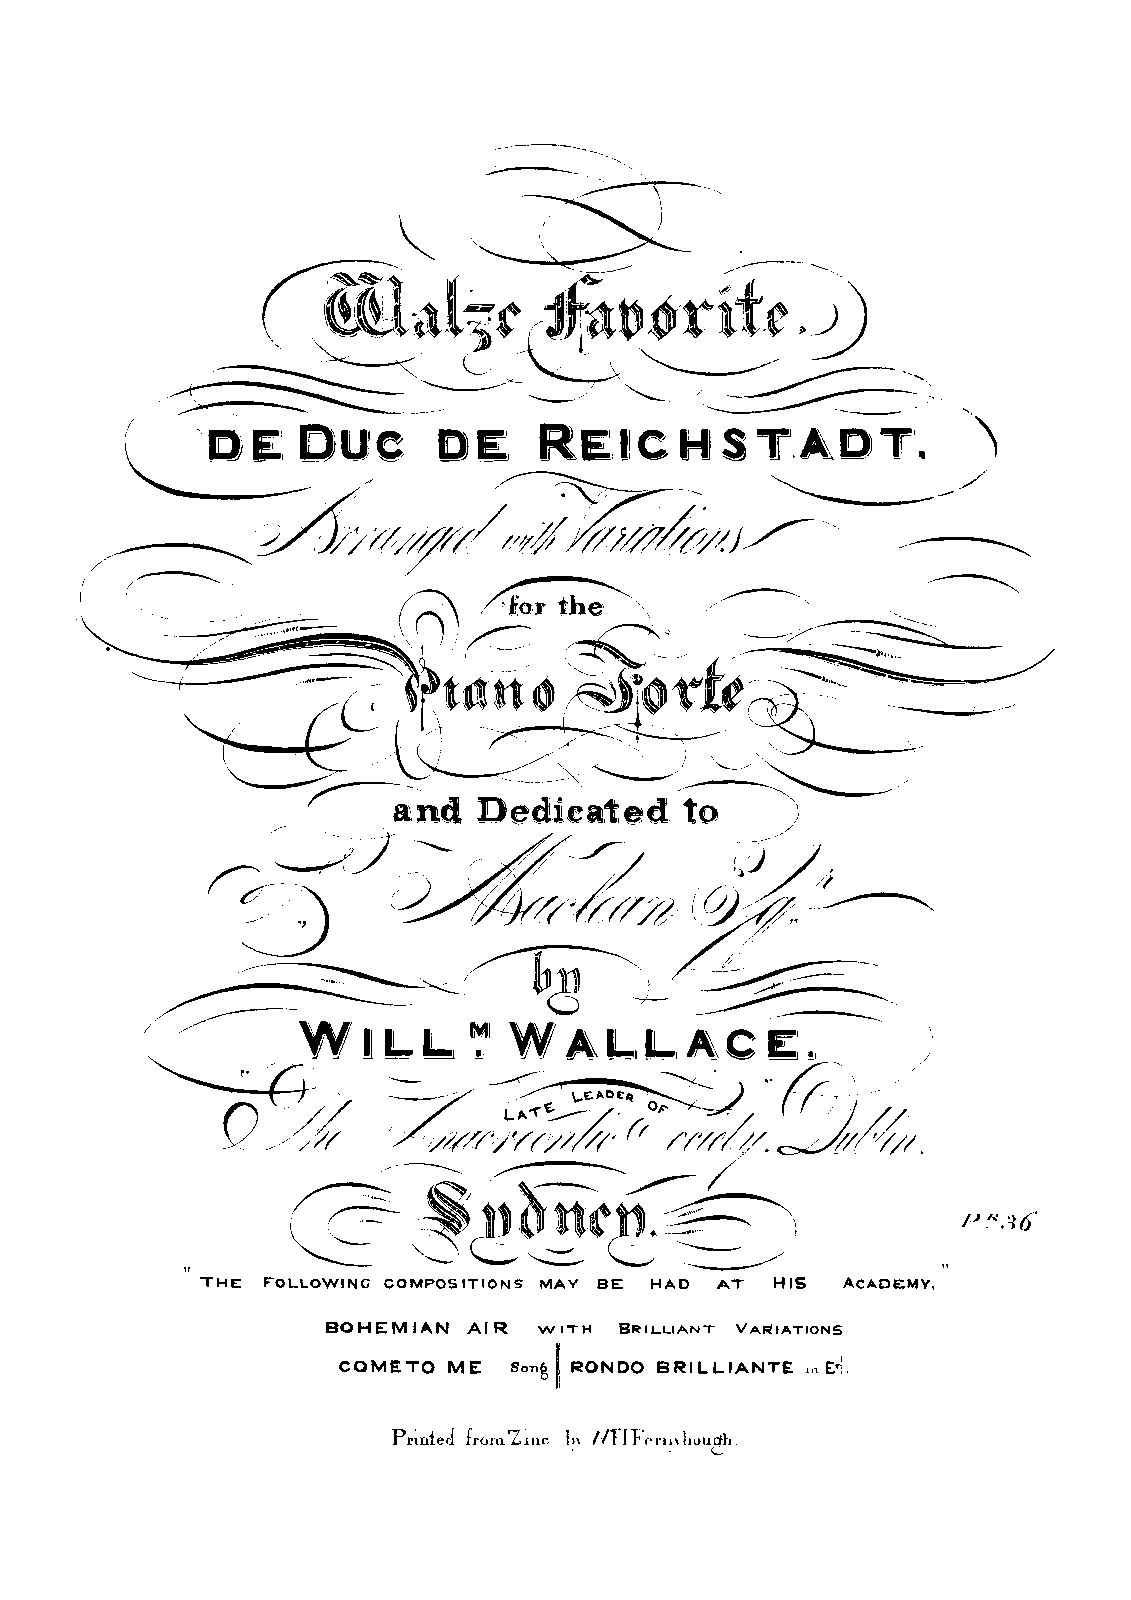 Walze Favorite.
DE DUC DE REICHSTADT.
Arranged with Variations
for the
Piano Forte
and Dedicated to
Maclean Esqr.
by
WILLM. WALLACE.
LATE LEADER OF
"The Anacreontic Society." Dublin.
Sydney.
"THE FOLLOWING COMPOSITIONS MAY BE HAD AT HIS ACADEMY,"
BOHEMIAN AIR WITH BRILLIANT VARIATIONS
COME TO ME Song RONDO BRILLIANTE in E♮.
Printed from Zinc by W H Fernyhough.